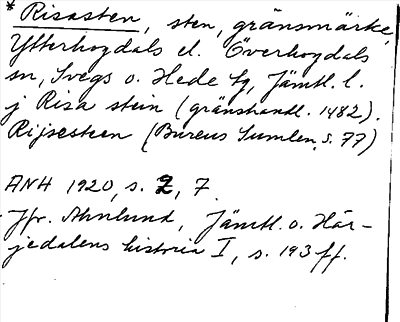 * Risasten, sten, gränsmärke,
Ytterhogdals el. Överhogdals
sn, Svegs o. Hede tg, Jämtl. l.
j Risa stein (gränshandl. 1482).
Rijsesteen (Bureus Sumlen, s. 77)
ANH 1920, s. 2, 7.
Jfr. Ahnlund, Jämtl. o. Här-
jedalens historia I, s. 193 ff.